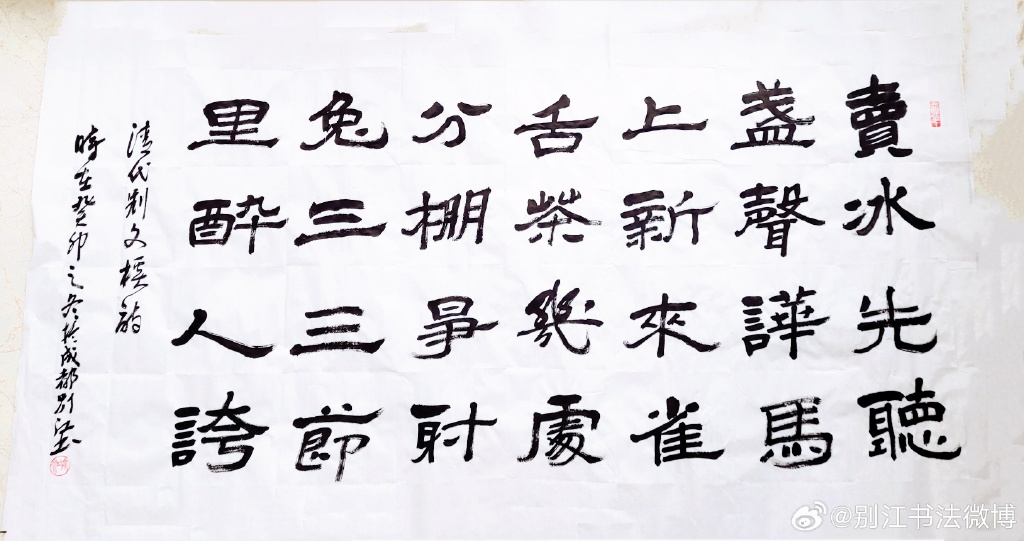 賣冰先聽
盞聲譁馬
上新來雀
舌茶幾處
分棚爭射
兔三三節
里醉人誇
清代 文 詩
時在癸卯之冬於成都別江書
@别江书法微博